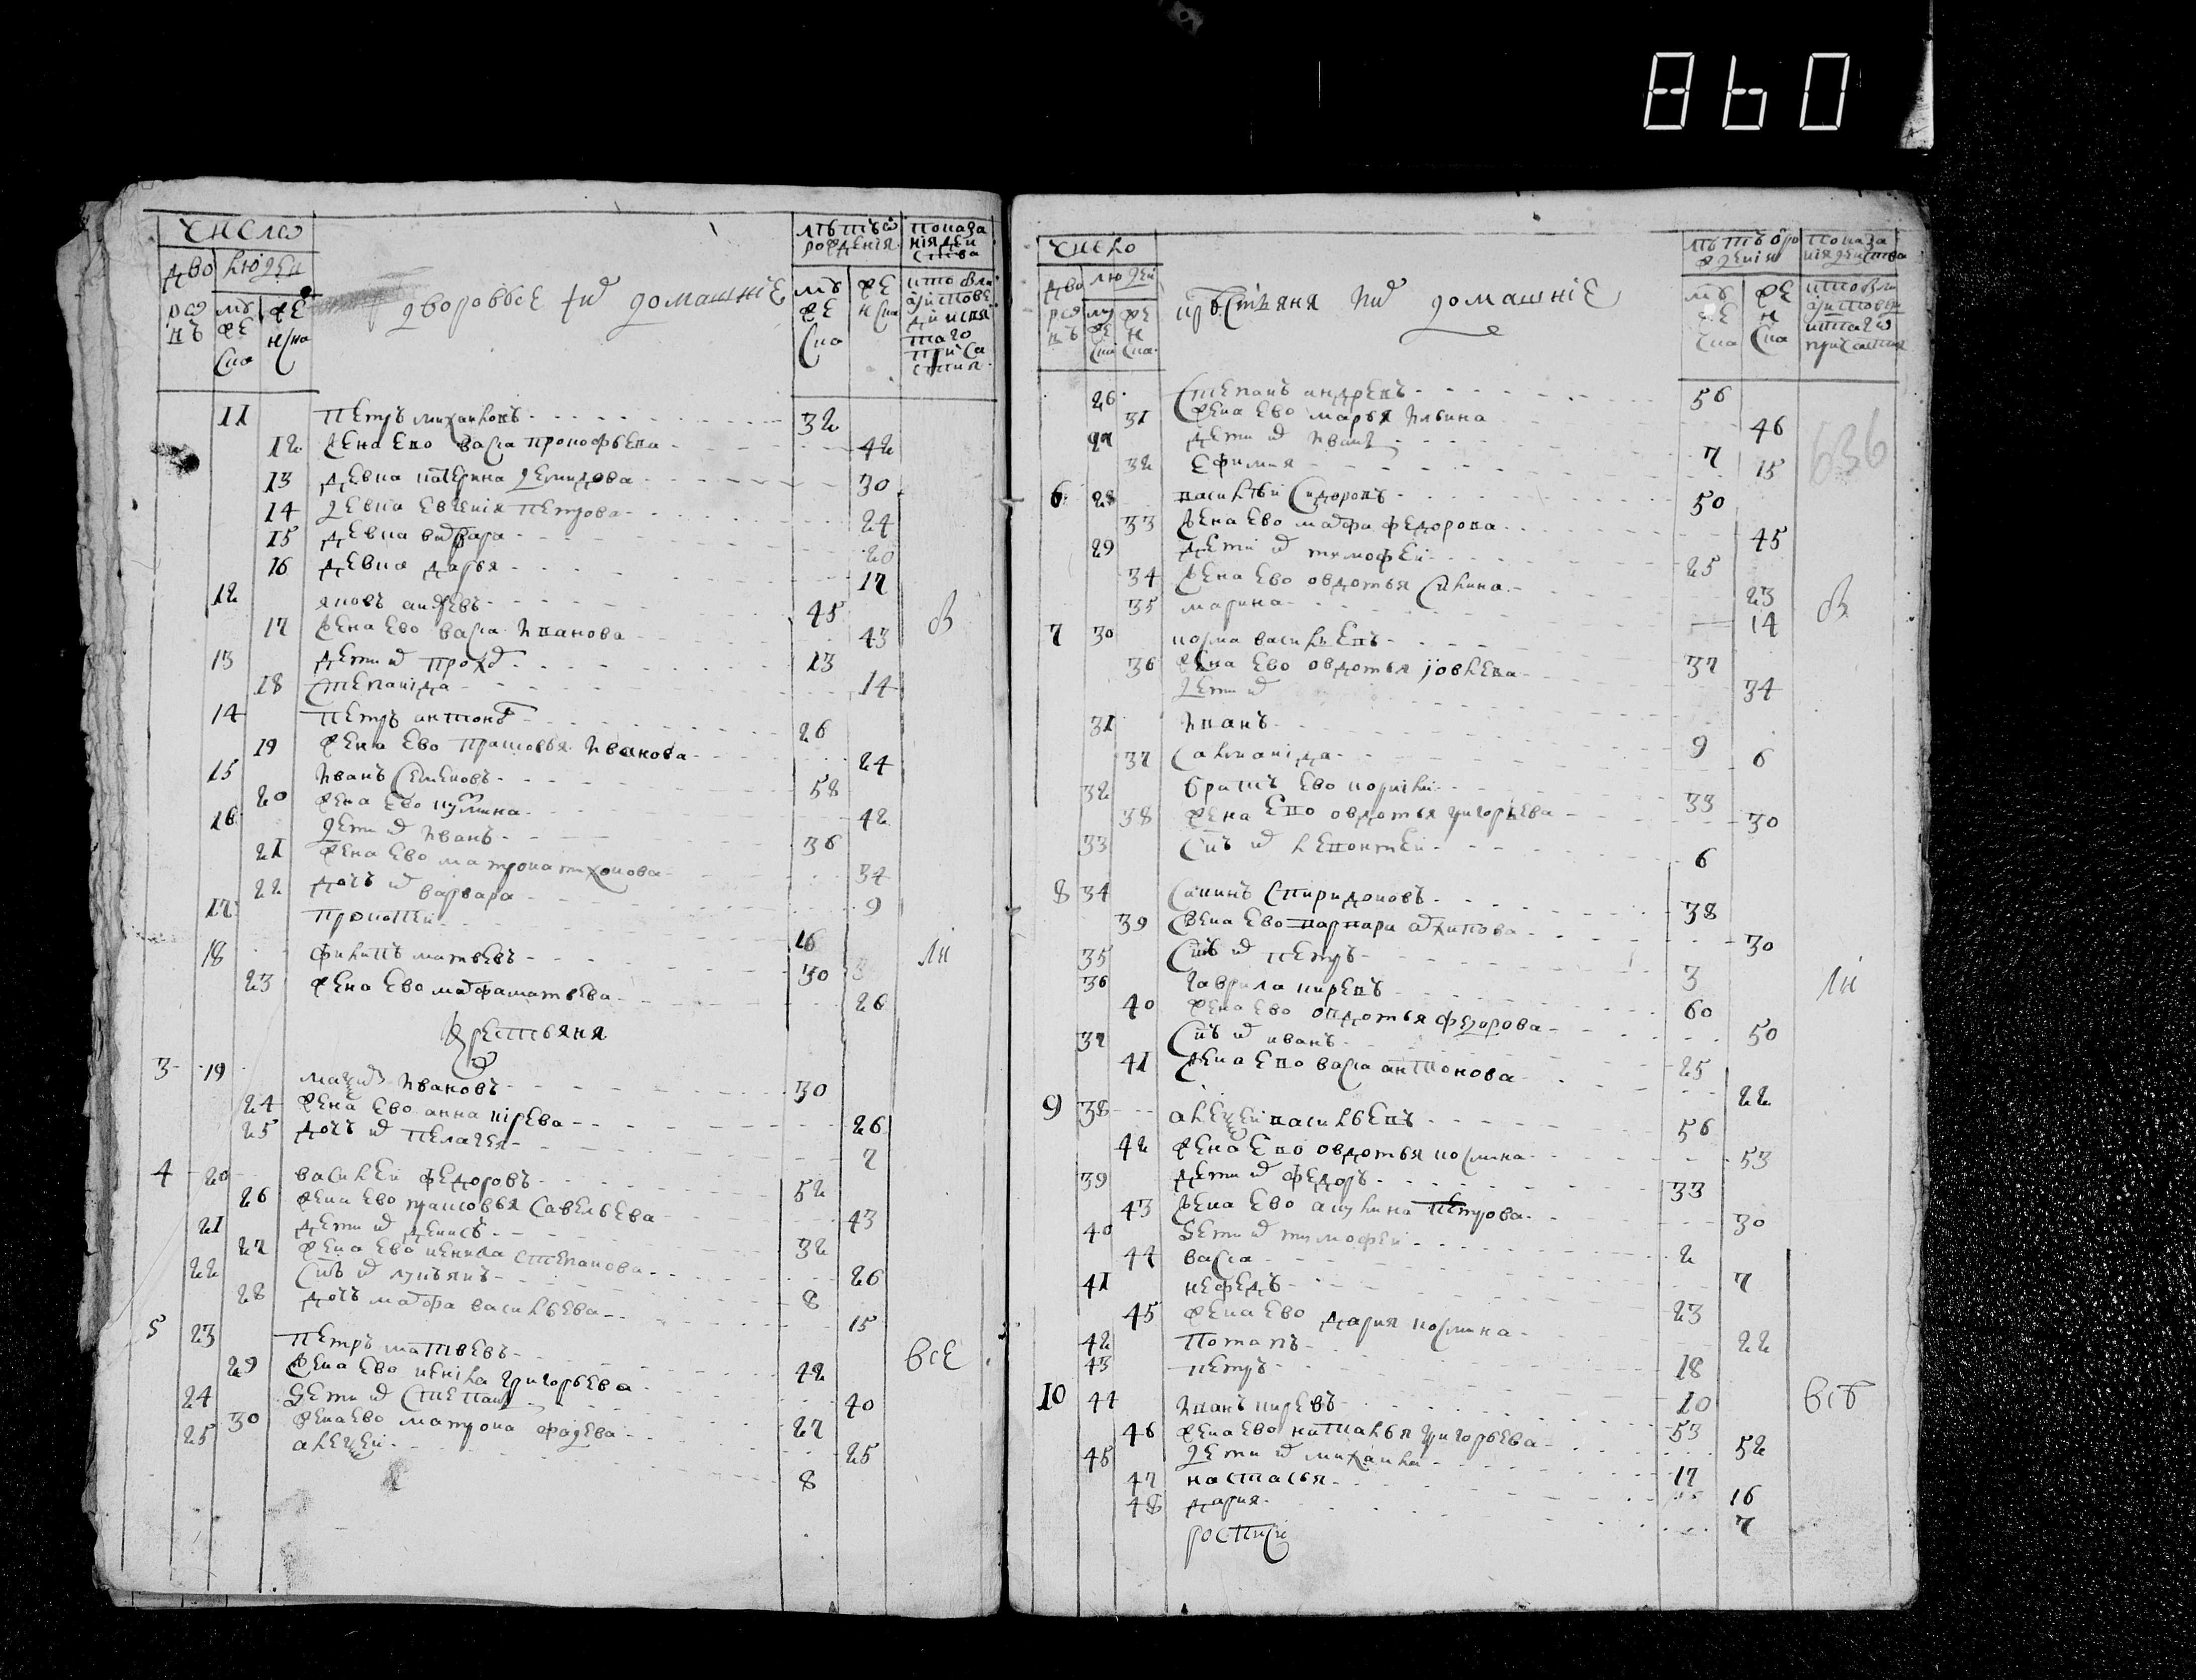 860
число
дворовъ
людей
мужеска
женска
дворовые ихъ домашніе
лѣтъ от рождения
мужеска
женска
11 Петръ михайловъ 32
12 Жена ево васса прокофьева 42
13 девка катерина демидова 30
14 девка евгения петрова 24
15 девка варвара 20
16 девка дарья 17
12 яковъ андреевъ 45
17 жена ево васса иванова 43
13 дети их прохор 13
18 степанида 14
14 Петръ антонов 26
19 жена ево прасковья иванова 24
15 иванъ семеновъ 58
20 жена ево кузмина 42
16 дети их иванъ 36
21 жена ево матрона тихонова 34
22 дочь их варвара 9
17 прокопей 16
18 филипъ матвеевъ 30
23 жена ево марфа матвеева 26
все
крестьяня
3 19 ивановъ 30
24 жена ево анна кирева 26
25 дочь их пелагея 2
4 20 василей федоровъ 52
26 жена ево прасковья савельева 43
21 дети их денисъ 32
27 жена ево ненила степанова 26
22 сынъ их лукьянъ 8
28 дочь марфа васильева 15
5 23 петръ матвеевъ 42
29 жена ево ненила григорьева 40
24 дети их степанъ 27
30 жена ево матрона фадеева 25
25 алексей 8
число
дворовъ
людей
мужеска
женска
крестьяня и их домашние
лѣтъ от рождения
мужеска
женска
26 степанъ андреевъ 56
31 жена ево марья ильина 46
27 дети их иванъ 7
32 ефимия 15
6 28 василей сидоровъ 50
33 жена ево марфа федорова 45
29 дети их тимофей 25
34 жена ево овдотья силина 23
35 марина 14
7 30 козма васильевъ 37
36 жена ево овдотья иовлева 34
дети их
31 иванъ 9
37 саломанида 6
32 братъ ево корнилий 33
38 жена ево овдотья григорьева 30
33 сынъ их левонтей 6
8 34 спиридоновъ 38
39 жена ево варвара архипова 30
35 сынъ их петръ 3
36 гаврила киревъ 60
40 жена ево овдотья федорова 50
37 сынъ их иванъ 25
41 жена ево васса антонова 22
9 38 алексей васильевъ 56
42 жена ево овдотья козмина 53
39 дети их федоръ 33
43 жена ево акулина петрова 30
40 дети их тимофей 2
44 васса 7
41 нефедъ 23
45 жена ево дария козмина 22
42 потапъ 18
43 петръ 10
10 44 иванъ киревъ 53
46 жена ево наталья григорьева 52
45 дети их михаила 17
47 настасья 16
48 дария 7
636
всѣ
росписи